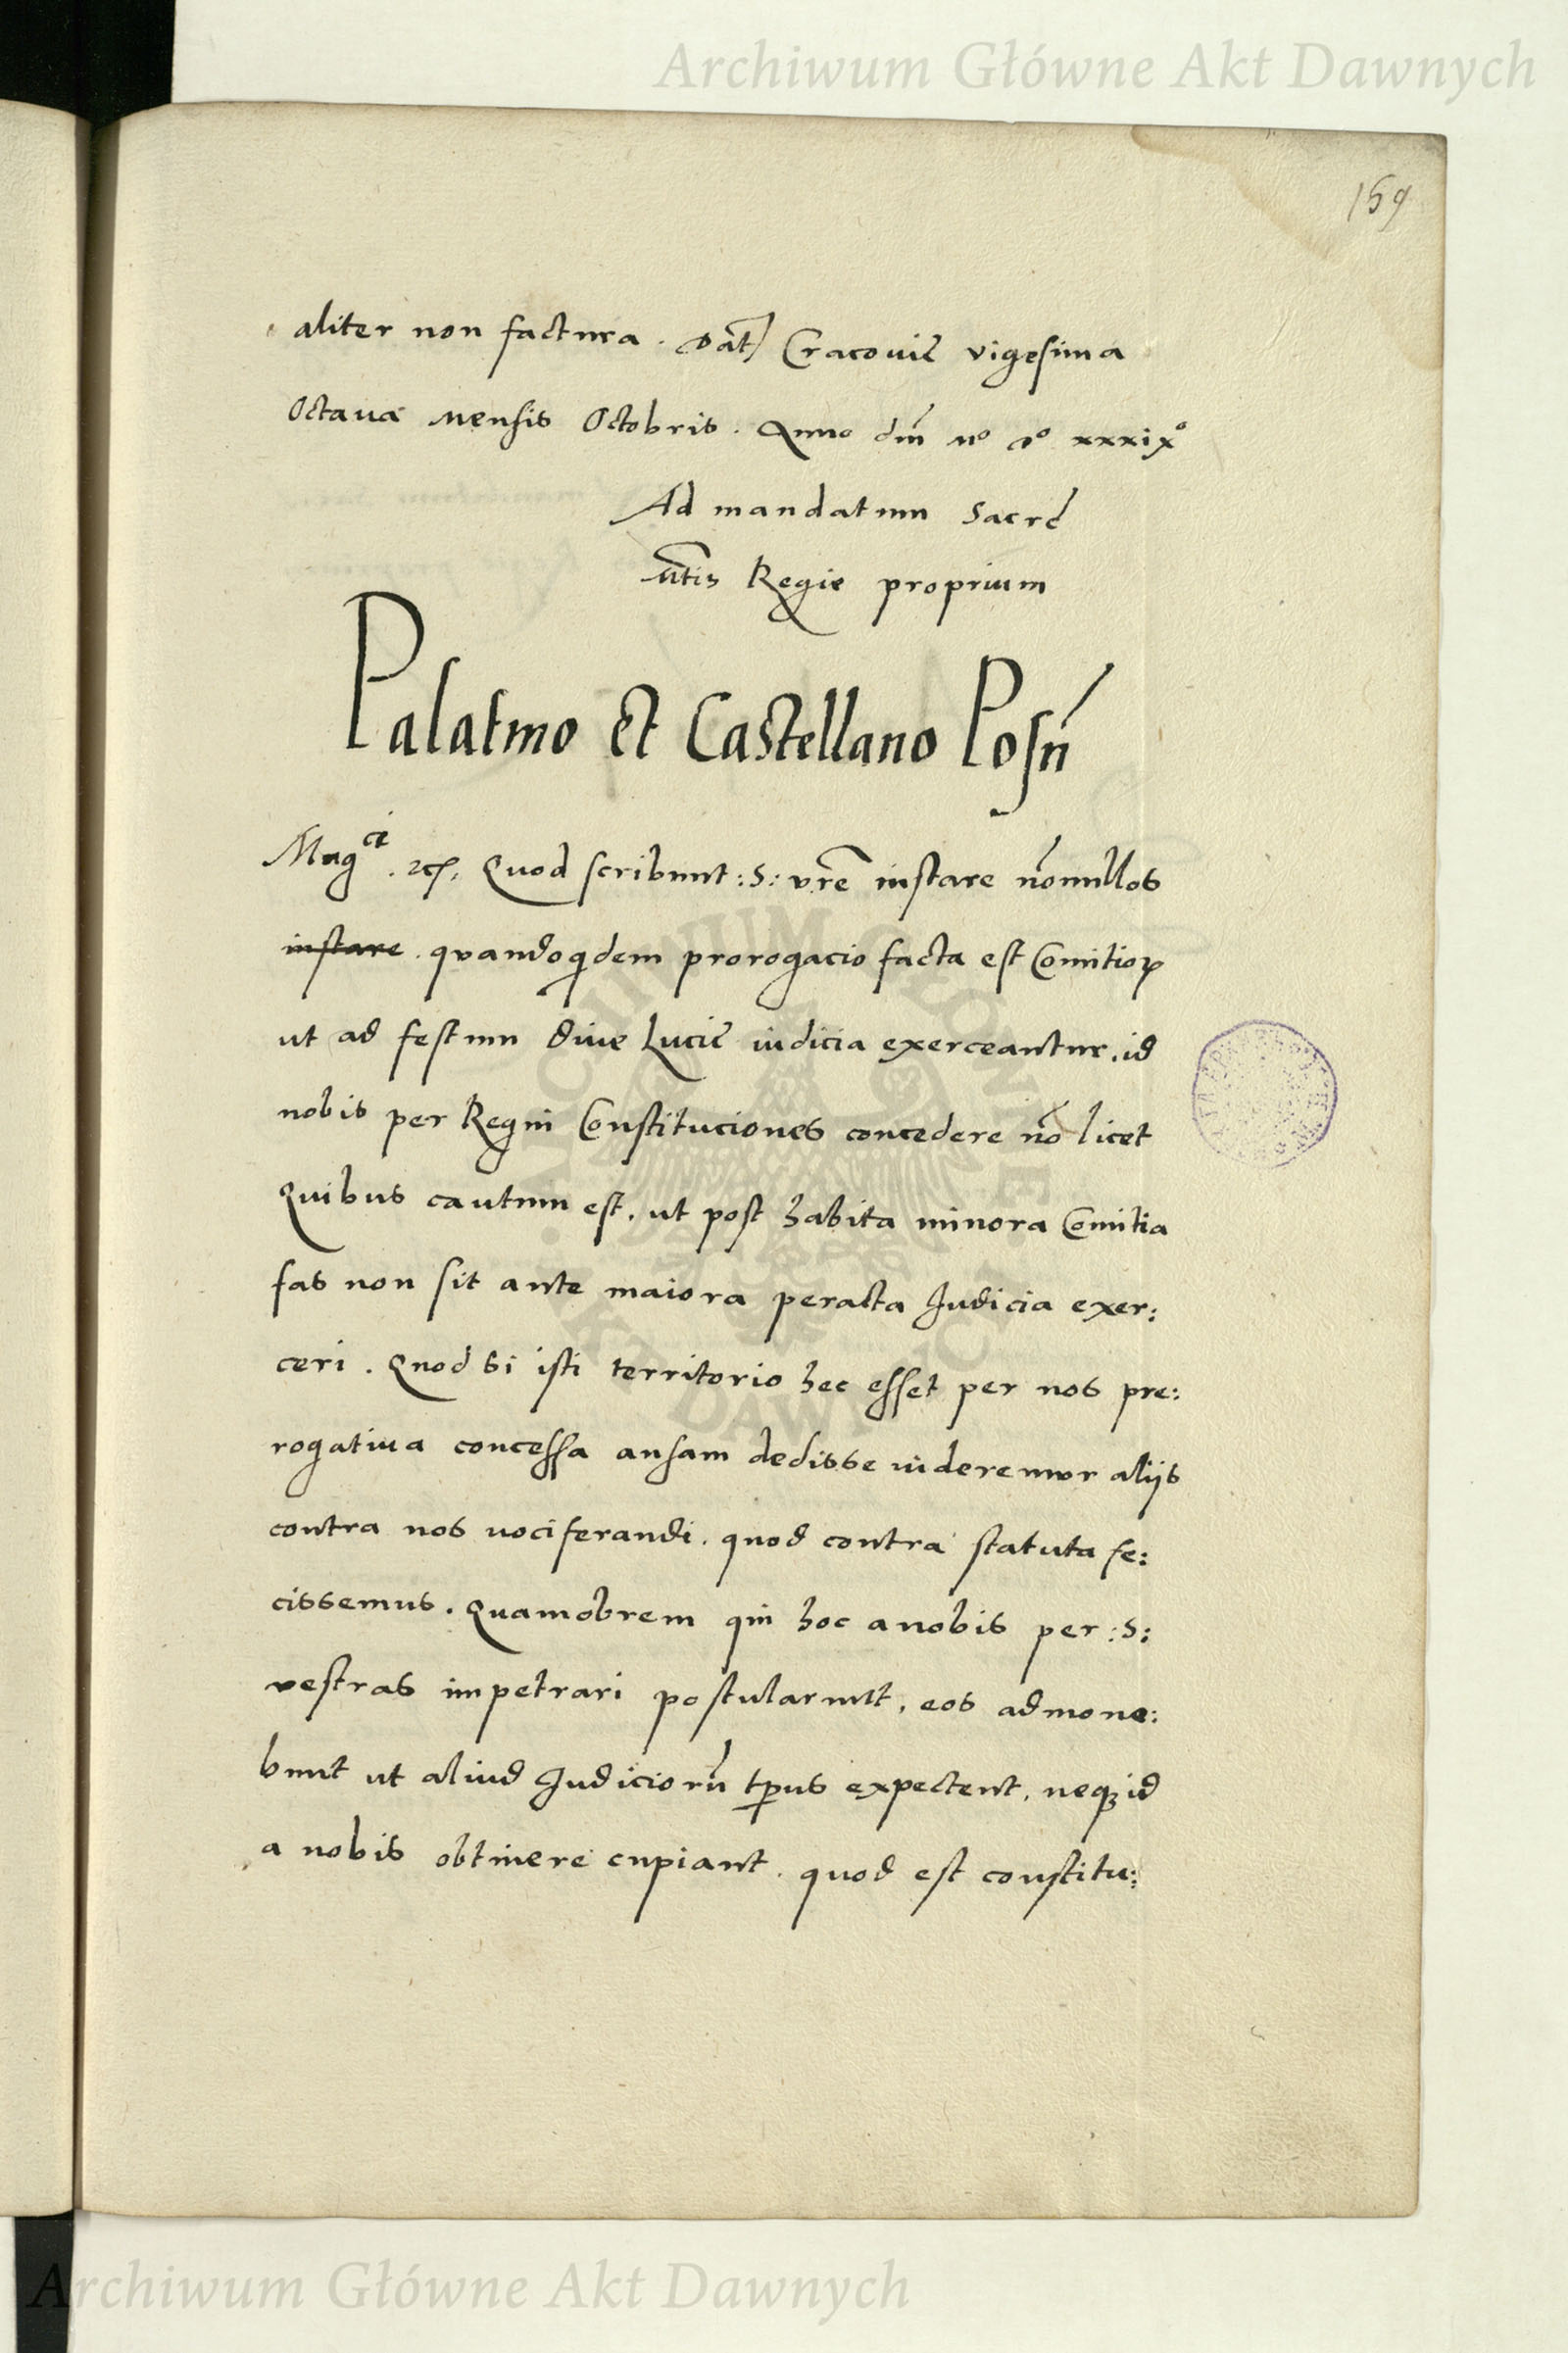 Archiwum Główne Akt Dawnych
159
aliter non factura. Dat Cracovie vigesima
Octava Mensis Octobris. Anno dni M° D° xxxix°
Ad mandatum Sacre
Mtis Regie proprium
Palatino Et Castellano Posn
Magci. etc. Quod scribunt :S: vre instare nonnullos
instare. quandoqdem prorogacio facta est Comitior
ut ad festum Dive Lucie iudicia exerceantur. id
nobis per Regni Constituciones concedere no licet
Quibus cautum est. ut post habita minora Comitia
fas non sit ante maiora peracta Judicia exer:
ceri. Quod si isti territorio hec esset per nos pre:
rogativa concessa ansam dedisse videremur aliis
contra nos vociferandi. quod contra statuta fe:
cissemus. Quamobrem qui hoc a nobis per :S:
vestras impetrari postularunt, eos admone:
bunt ut aliud Judicioru tpus expectent. neq3 id
a nobis obtinere cupiant. quod est constitu:
Archiwum Główne Akt Dawnych